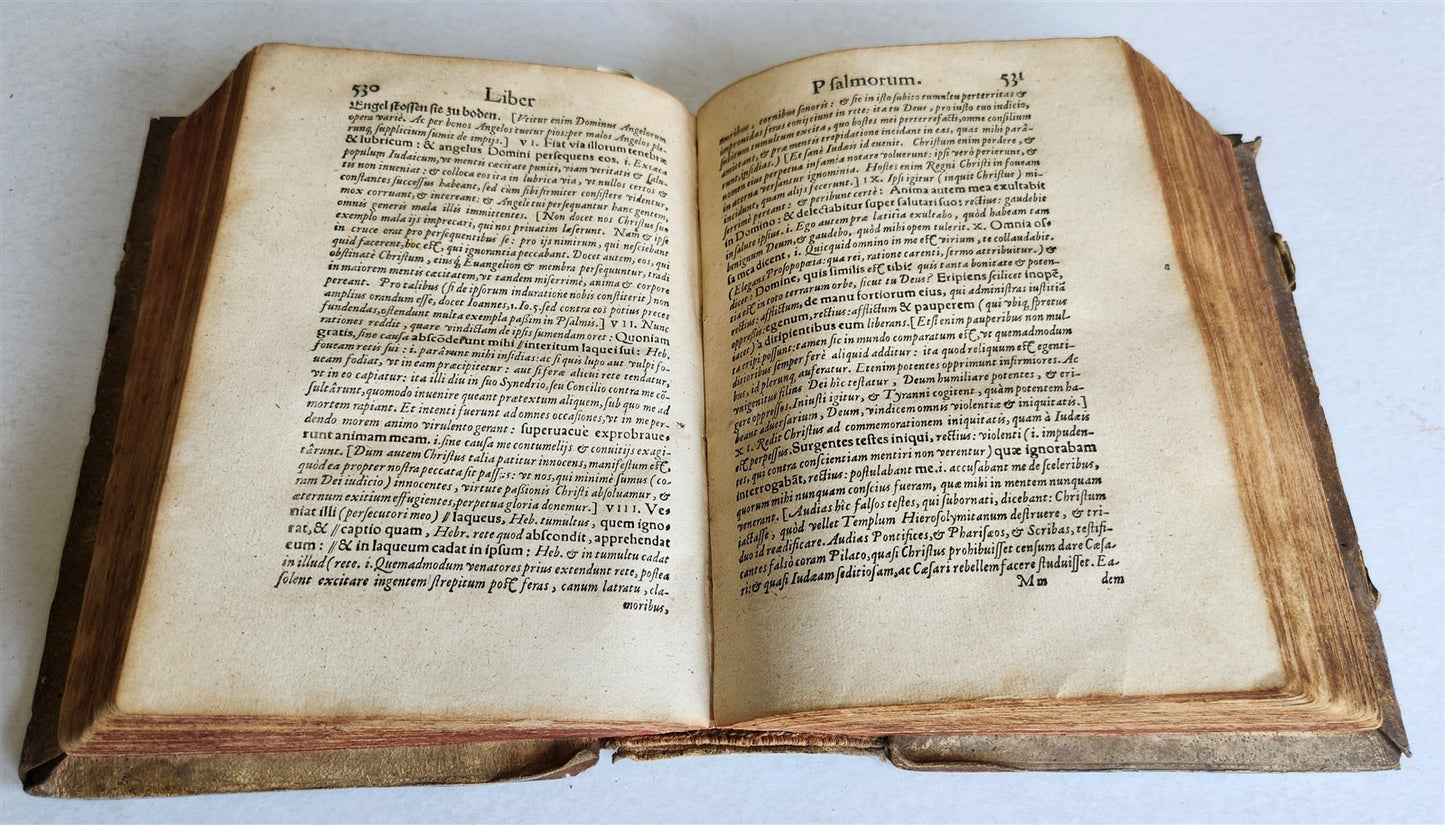 530
Liber
Engel stossen sie zu boden. [Vtitur enim Dominus Angelorum
opera variè. Ac per bonos Angelos tuetur pios: per malos Angelos ple-
runq, supplicium sumit de impijs.] VI. Fiat via illorum tenebræ
& lubricum: & angelus Domini persequens eos. i. Excæca
populum Iudaicum, vt mentis cæcitate puniti, viam veritatis & salu-
tis non inueniat: & colloca eos ita in lubrica via, vt nullos certos &
constantes successus habeant, sed cùm sibi firmiter consistere videntur,
mox corruant, & intereant: & Angeli tui persequantur hanc gentem,
omnis generis mala illis immittentes. [Non docet nos Christus suo
exemplo mala ijs imprecari, qui nos priuatim læserunt. Nam & ipse
in cruce orat pro persequentibus se: pro ijs nimirum, qui nesciebant
quid facerent, hoc est, qui ignorantia peccabant. Docet autem, eos, qui
obstinatè Christum, eiusq, Euangelion & membra persequuntur, tradi
in maiorem mentis cæcitatem, vt tandem miserrimè, anima & corpore
pereant. Pro talibus (si de ipsorum induratione nobis constiterit) non
amplius orandum esse, docet Ioannes, 1. Io. 5. sed contra eos potius preces
fundendas, ostendunt multa exempla paßim in Psalmis.] VII. Nunc
rationes reddit, quare vindictam de ipsis sumendam oret: Quoniam
gratis, sine causa abscōderunt mihi // interitum laquei sui: Heb.
foueam retis sui: i. parârunt mihi insidias: ac si quis lupo aut vulpi fo-
ueam fodiat, vt in eam præcipitetur: aut si feræ alicui rete tendatur,
vt in eo capiatur: ita illi diu in suo Synedrio, seu Concilio contra me cō-
sultârunt, quomodo inuenire queant prætextum aliquem, sub quo me ad
mortem rapiant. Et intenti fuerunt ad omnes occasiones, vt in me per-
dendo morem animo virulento gerant: superuacuè exprobraue-
runt animam meam. i. sine causa me contumelijs & conuitijs exagi-
târunt. [Dum autem Christus talia patitur innocens, manifestum est,
quòd ea propter nostra peccata sit passus: vt nos, qui minimè sumus (co-
ram Dei iudicio) innocentes, virtute passionis Christi absoluamur, &
æternum exitium effugientes, perpetua gloria donemur.] VIII. Ve-
niat illi (persecutori meo) // laqueus, Heb. tumultus, quem igno-
rat, & // captio quam, Hebr. rete quod abscondit, apprehendat
eum: // & in laqueum cadat in ipsum: Heb. & in tumultu cadat
in illud (rete. i. Quemadmodum venatores prius extendunt rete, postea
solent excitare ingentem strepitum post feras, canum latratu, cla-
moribus,
Psalmorum.
531
moribus, cornibus sonoris: & sic in isto subito tumultu perterritas &
improuidas feras conijciunt in rete: ita tu Deus, pro iusto tuo iudicio,
subitum tumultum excita, quo hostes mei perterrefacti, omne consilium
amittant, & præ mentis trepidatione incidant in eas, quas mihi parâ-
runt, insidias.) [Et sanè Iudæis id euenit. Christum enim perdere, &
nomen eius perpetua infamia notare voluerunt: ipsi verò perierunt, &
in æterna versantur ignominia. Hostes enim Regni Christi in foueam
incidunt, quam alijs fecerunt.] IX. Ipsi igitur (inquit Christus) mi-
serrimè pereant: & peribunt certè: Anima autem mea exultabit
in Domino: & delectabitur super salutari suo: rectius: gaudebit
in salute ipsius. i. Ego autem præ lætitia exultabo, quòd habeam tam
benignum Deum, & gaudebo, quòd mihi opem tulerit. X. Omnia os-
sa mea dicent, i. Quicquid omnino in me est virium, te collaudabit.
(Elegans Prosopopœia: qua rei, ratione carenti, sermo attribuitur.) &
dicet: Domine, quis similis est tibi? quis tanta bonitate & poten-
tia est in toto terrarum orbe, sicut tu Deus? Eripiens scilicet inopē,
rectius: afflictum, de manu fortiorum eius, qui administras iustitiā
oppressis: egenum, rectius: afflictum & pauperem (qui vbiq, spretus
iacet) à diripientibus eum liberans. [Etsi enim pauperibus non mul-
ta eripi possunt: tamen sic in mundo comparatum est, vt quemadmodum
ditioribus semper ferè aliquid additur: ita quod reliquum est egenti-
bus, id plerunq, auferatur. Etenim potentes opprimunt infirmiores. Ac
vnigenitus filius Dei hîc testatur, Deum humiliare potentes, & eri-
gere oppressos. Iniusti igitur, & Tyranni cogitent, quàm potentem ha-
beant aduersarium, Deum, vindicem omnis violentiæ & iniquitatis.]
XI. Redit Christus ad commemorationem iniquitatis, quam à Iudæis
est perpessus. Surgentes testes iniqui, rectius: violenti (i. impuden-
tes, qui contra conscientiam mentiri non verentur) quæ ignorabam
interrogabāt, rectius: postulabant me. i. accusabant me de sceleribus,
quorum mihi nunquam conscius fueram, quæ mihi in mentem nunquam
venerant. [Audias hîc falsos testes, qui subornati, dicebant: Christum
iactasse, quòd vellet Templum Hierosolymitanum destruere, & tri-
duo id reædificare. Audias Pontifices, & Pharisæos, & Scribas, testifi-
cantes falsò coram Pilato, quasi Christus prohibuisset censum dare Cæsa-
ri: & quasi Iudæam seditiosam, ac Cæsari rebellem facere studuisset. Ea-
Mm dem